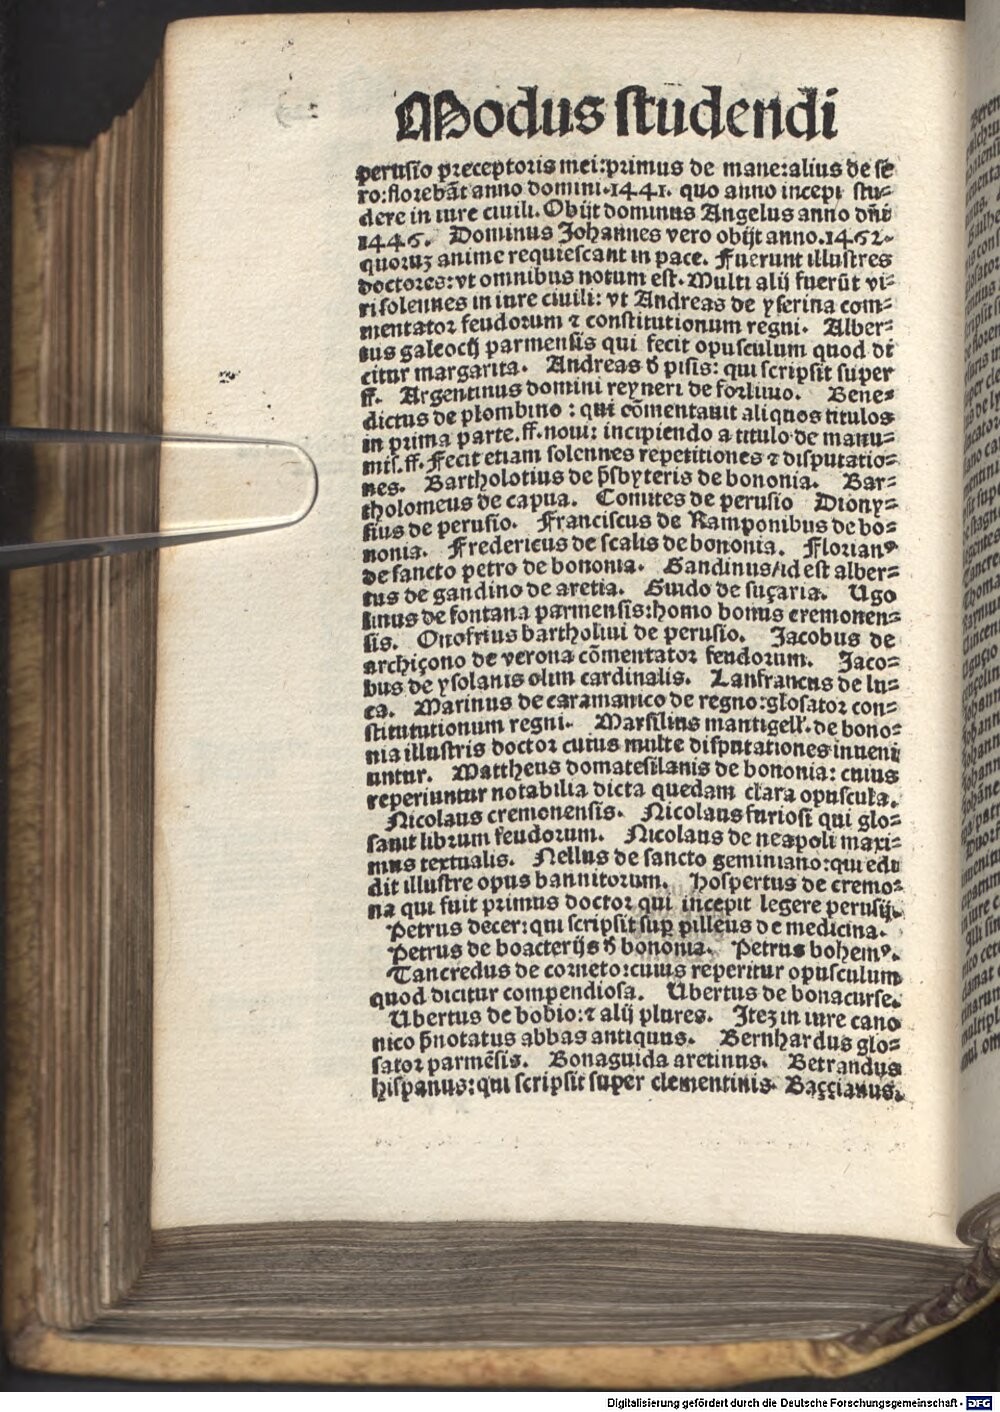 Modus studendi
perusio preceptoris mei:primus de mane:alius de se
ro:florebāt anno domini.1441. quo anno incepi stu-
dere in iure ciuili. Obijt dominus Angelus anno dñi
1446. Dominus Johannes vero obijt anno.1462.
quoruꝫ anime requiescant in pace. Fuerunt illustres
doctores:vt omnibus notum est. Multi alij fuerūt vi-
ri solennes in iure ciuili: vt Andreas de yserina com-
mentator feudorum ⁊ constitutionum regni. Alber-
tus galeoctj parmensis qui fecit opusculum quod di
citur margarita. Andreas đ pisis: qui scripsit super
ff. Argentinus domini reyneri de forliuio. Bene-
dictus de plombino : qui cōmentauit aliquos titulos
in prima parte.ff.noui: incipiendo a titulo de manu-
mis.ff. Fecit etiam solennes repetitiones ⁊ disputatio-
nes. Bartholotius de p̄sbyteris de bononia. Bar-
tholomeus de capua. Comites de perusio Diony-
sius de perusio. Franciscus de Ramponibus de bo-
nonia. Fredericus de scalis de bononia. Florianꝰ
de sancto petro de bononia. Gandinus/id est alber-
tus de gandino de aretia. Guido de suçaria. Ugo
linus de fontana parmensis:homo bonus cremonen-
sis. Onofrius bartholini de perusio. Jacobus de
archiçono de verona cōmentator feudorum. Jaco-
bus de ysolanis olim cardinalis. Lanfrancus de lu-
ca. Marinus de caramanico de regno:glosator con-
stitutionum regni. Marsilius mantigell'.de bono-
nia illustris doctor cuius multe disputationes inueni
untur. Mattheus domatesilanis de bononia: cuius
reperiuntur notabilia dicta quedam clara opuscula.
Nicolaus cremonensis. Nicolaus furiosi qui glo-
sauit librum feudorum. Nicolaus de neapoli maxi-
mus textualis. Nellus de sancto geminiano:qui edi
dit illustre opus bannitorum. Hospertus de cremo-
na qui fuit primus doctor qui incepit legere perusij.
Petrus decer:qui scripsit suꝑ pilleus de medicina.
Petrus de boacterijs đ bononia. Petrus bohemꝰ.
Tancredus de corneto:cuius reperitur opusculum
quod dicitur compendiosa. Ubertus de bonacurse.
Ubertus de bobio:⁊ alij plures. Iteꝫ in iure cano
nico p̄notatus abbas antiquus. Bernhardus glo-
sator parmēsis. Bonaguida aretinus. Betrandus
hispanus:qui scripsit super clementinis. Baççianus.
Digitalisierung gefördert durch die Deutsche Forschungsgemeinschaft - DFG